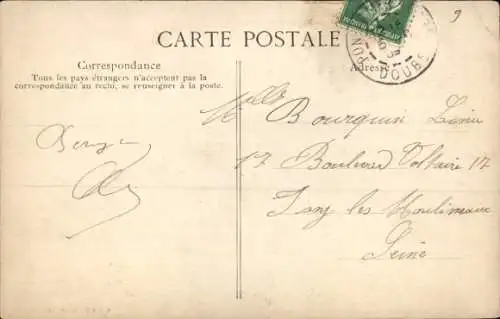 9
CARTE POSTALE
Correspondance
Tous les pays étrangers n'acceptent pas la
correspondance au recto, se renseigner à la poste.
Adresse
DOUBS
Mlle Bourquin
17 Boulevard Voltaire 17
Issy les Moulineaux
Seine